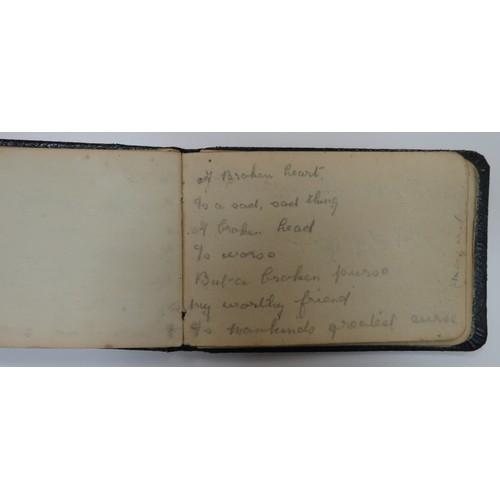 A Broken heart,
Is a sad, sad thing
A broken head
Is worse
But a broken purse
my worthy friend
Is mankinds greatest curse